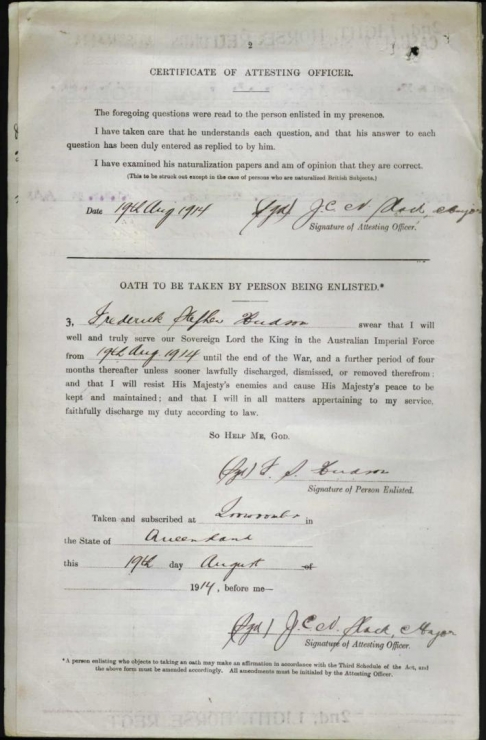 2
CERTIFICATE OF ATTESTING OFFICER.
The foregoing questions were read to the person enlisted in my presence.
I have taken care that he understands each question, and that his answer to each
question has been duly entered as replied to by him.
I have examined his naturalization papers and am of opinion that they are correct.
(This to be struck out except in the case of persons who are naturalized British Subjects.)
Date 19th Aug 1914 (Sgd) J. C. Major
Signature of Attesting Officer.
OATH TO BE TAKEN BY PERSON BEING ENLISTED.*
3. Frederick Stephen Hudson swear that I will
well and truly serve our Sovereign Lord the King in the Australian Imperial Force
from 19th Aug 1914 until the end of the War, and a further period of four
months thereafter unless sooner lawfully discharged, dismissed, or removed therefrom;
and that I will resist His Majesty's enemies and cause His Majesty's peace to be
kept and maintained; and that I will in all matters appertaining to my service,
faithfully discharge my duty according to law.
SO HELP ME, GOD.
(Sgd) F. S. Hudson
Signature of Person Enlisted.
Taken and subscribed at Toowoomba in
the State of Queensland
this 19th day August of
1914, before me—
(Sgd) J. C. Major
Signature of Attesting Officer.
*A person enlisting who objects to taking an oath may make an affirmation in accordance with the Third Schedule of the Act, and
the above form must be amended accordingly. All amendments must be initialed by the Attesting Officer.